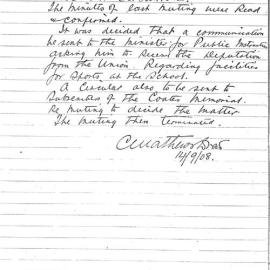 The Minutes of last Meeting were Read
& confirmed.
It was decided that a communication
be sent to the Minister for Public Instruction
asking him to receive the Deputation
from the Union. Regarding facilities
for Sports at the School.
A Circular also to be sent to
Subscribers of the Coates Memorial.
Re Meeting to decide the matter
The Meeting then terminated.
14/9/08.